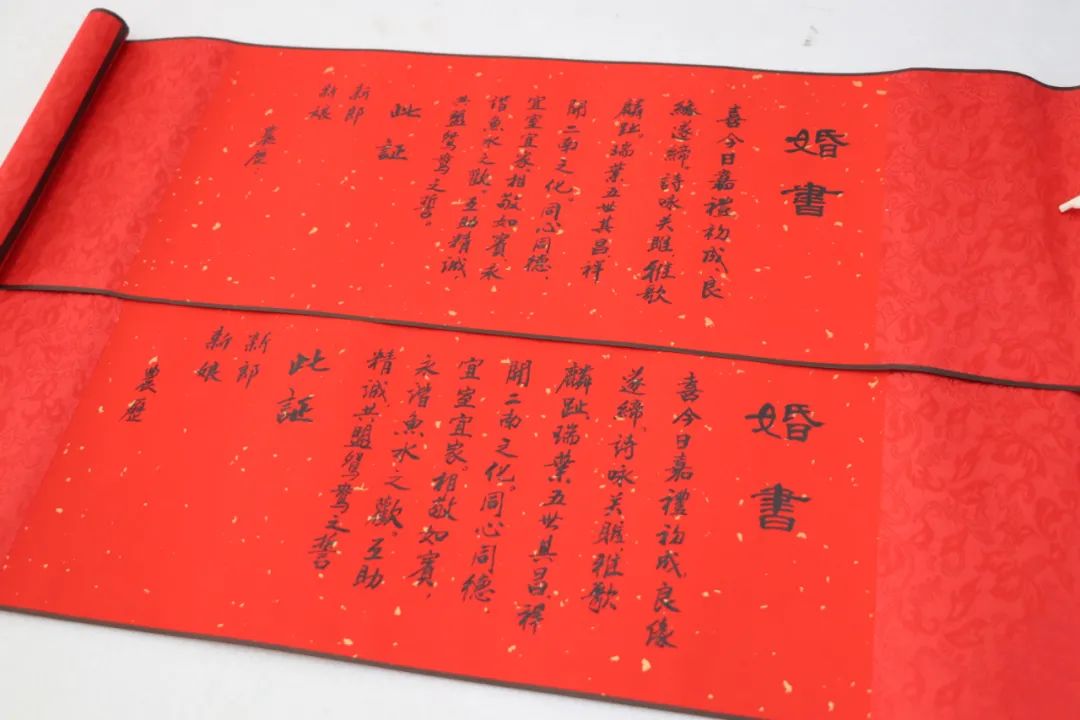 婚書
喜今日嘉禮初成良
緣遂締詩咏关雎雅歌
麟趾瑞葉五世其昌祥
開二南之化同心同德
宜室宜家相敬如賓永
谐魚水之歡互助精诚
共盟鸳鸯之誓。
此証
新郎
新娘
農歷
婚書
喜今日嘉禮初成良缘
遂締詩咏关雎雅歌
麟趾瑞葉五世其昌祥
開二南之化同心同德
宜室宜家相敬如賓
永谐魚水之歡互助
精诚共盟鸳鸯之誓
此証
新郎
新娘
農歷